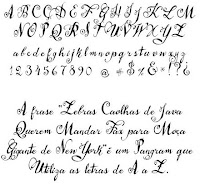 A B C D E F G H I J K L M
N O P Q R S T U V W X Y Z
a b c d e f g h i j k l m n o p q r s t u v w x y z
1 2 3 4 5 6 7 8 9 0 @ $ & * ! ?
A frase "Zebras Caolhas de Java
Querem Mandar Fax para Moça
Gigante de New York" é um Pangram que
Utiliza as letras de A a Z.